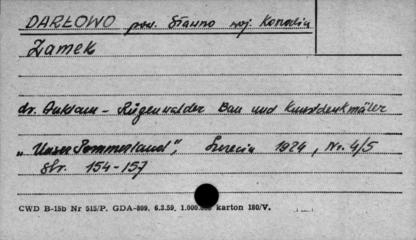 DARŁOWO pow. Sławno woj. Koszalin
Zamek
dr. - Rügenwalder Bau und Kunstdenkmäler
„Unser Pommerland", Szczecin 1924, Nr. 4/5
Str. 154-157
CWD B-15b Nr 515/P. GDA-809. 6.3.59. 1.000.000 karton 180/V.